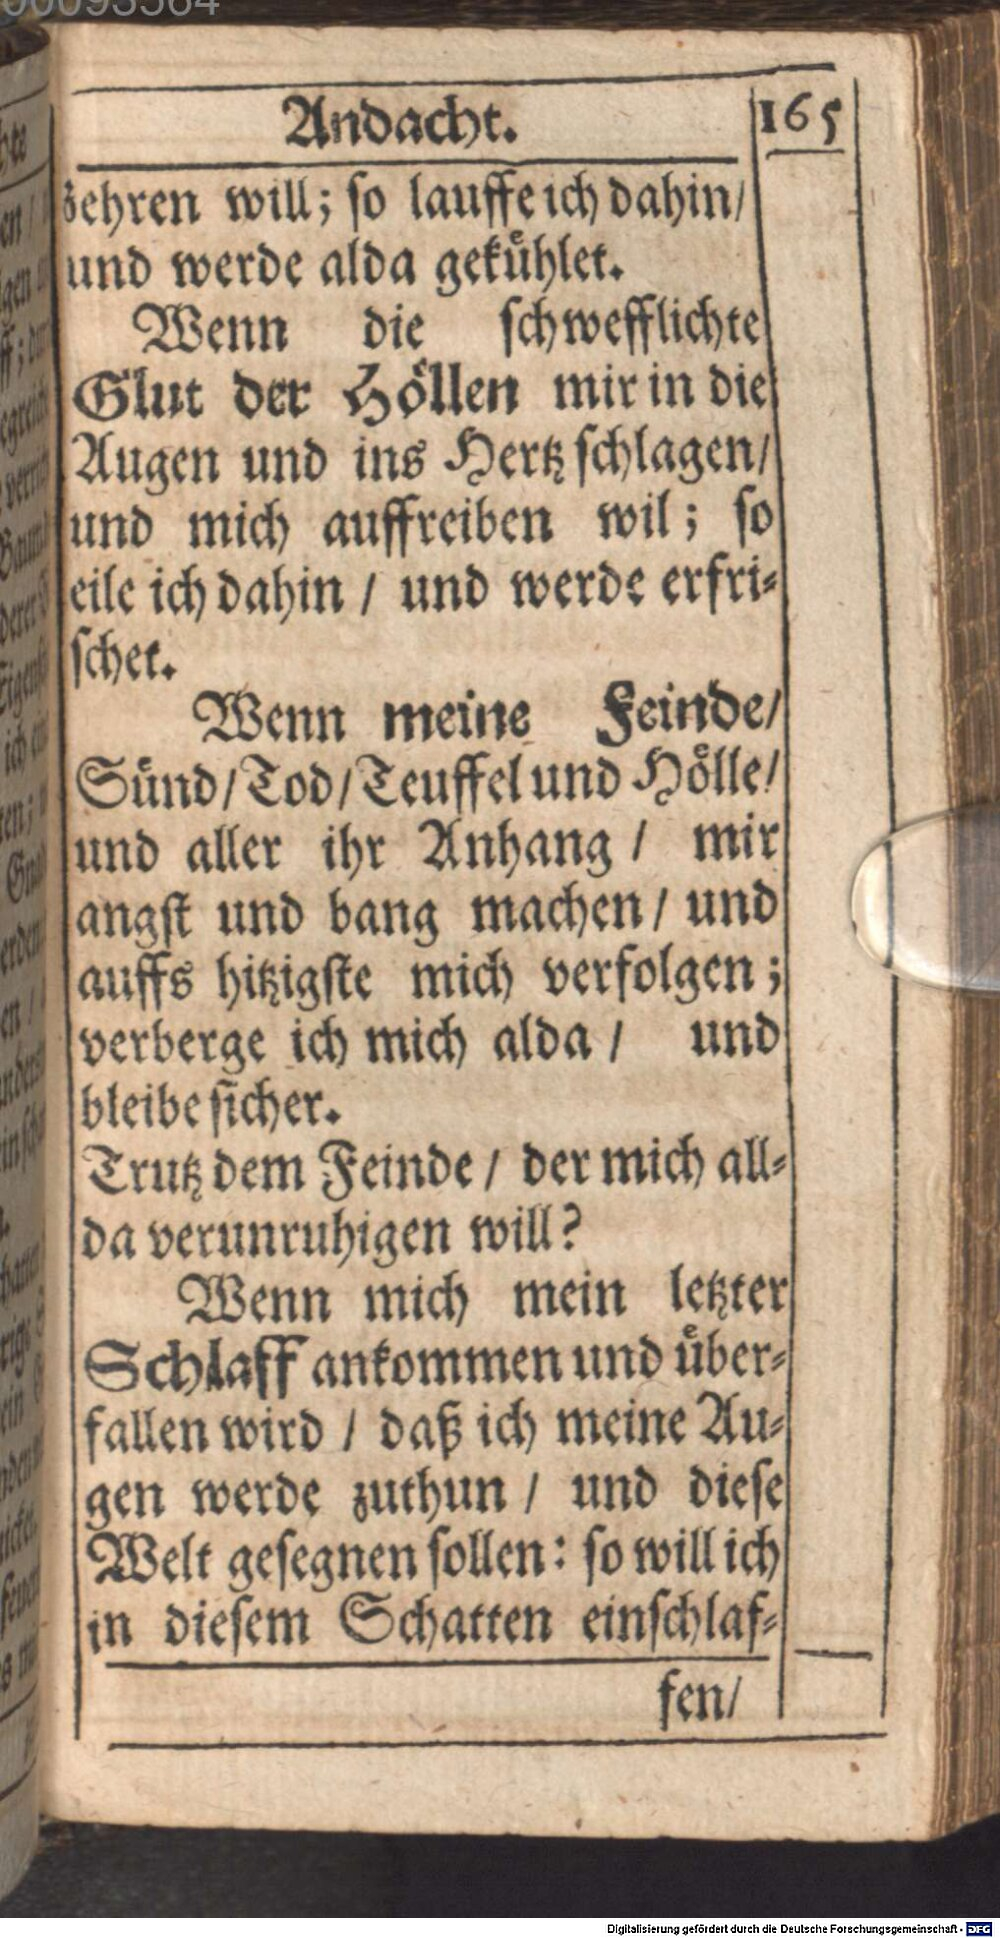 Andacht. 165
zehren will; so lauffe ich dahin/
und werde alda gekuͤhlet.
Wenn die schwefflichte
Glut der Hoͤllen mir in die
Augen und ins Hertz schlagen/
und mich auffreiben wil; so
eile ich dahin / und werde erfri⸗
schet.
Wenn meine Feinde/
Suͤnd/Tod/Teuffel und Hoͤlle/
und aller ihr Anhang / mir
angst und bang machen/ und
auffs hitzigste mich verfolgen;
verberge ich mich alda / und
bleibe sicher.
Trutz dem Feinde / der mich all⸗
da verunruhigen will?
Wenn mich mein letzter
Schlaff ankommen und uͤber⸗
fallen wird / daß ich meine Au⸗
gen werde zuthun / und diese
Welt gesegnen sollen: so will ich
in diesem Schatten einschlaf⸗
fen/
Digitalisierung gefördert durch die Deutsche Forschungsgemeinschaft - DFG